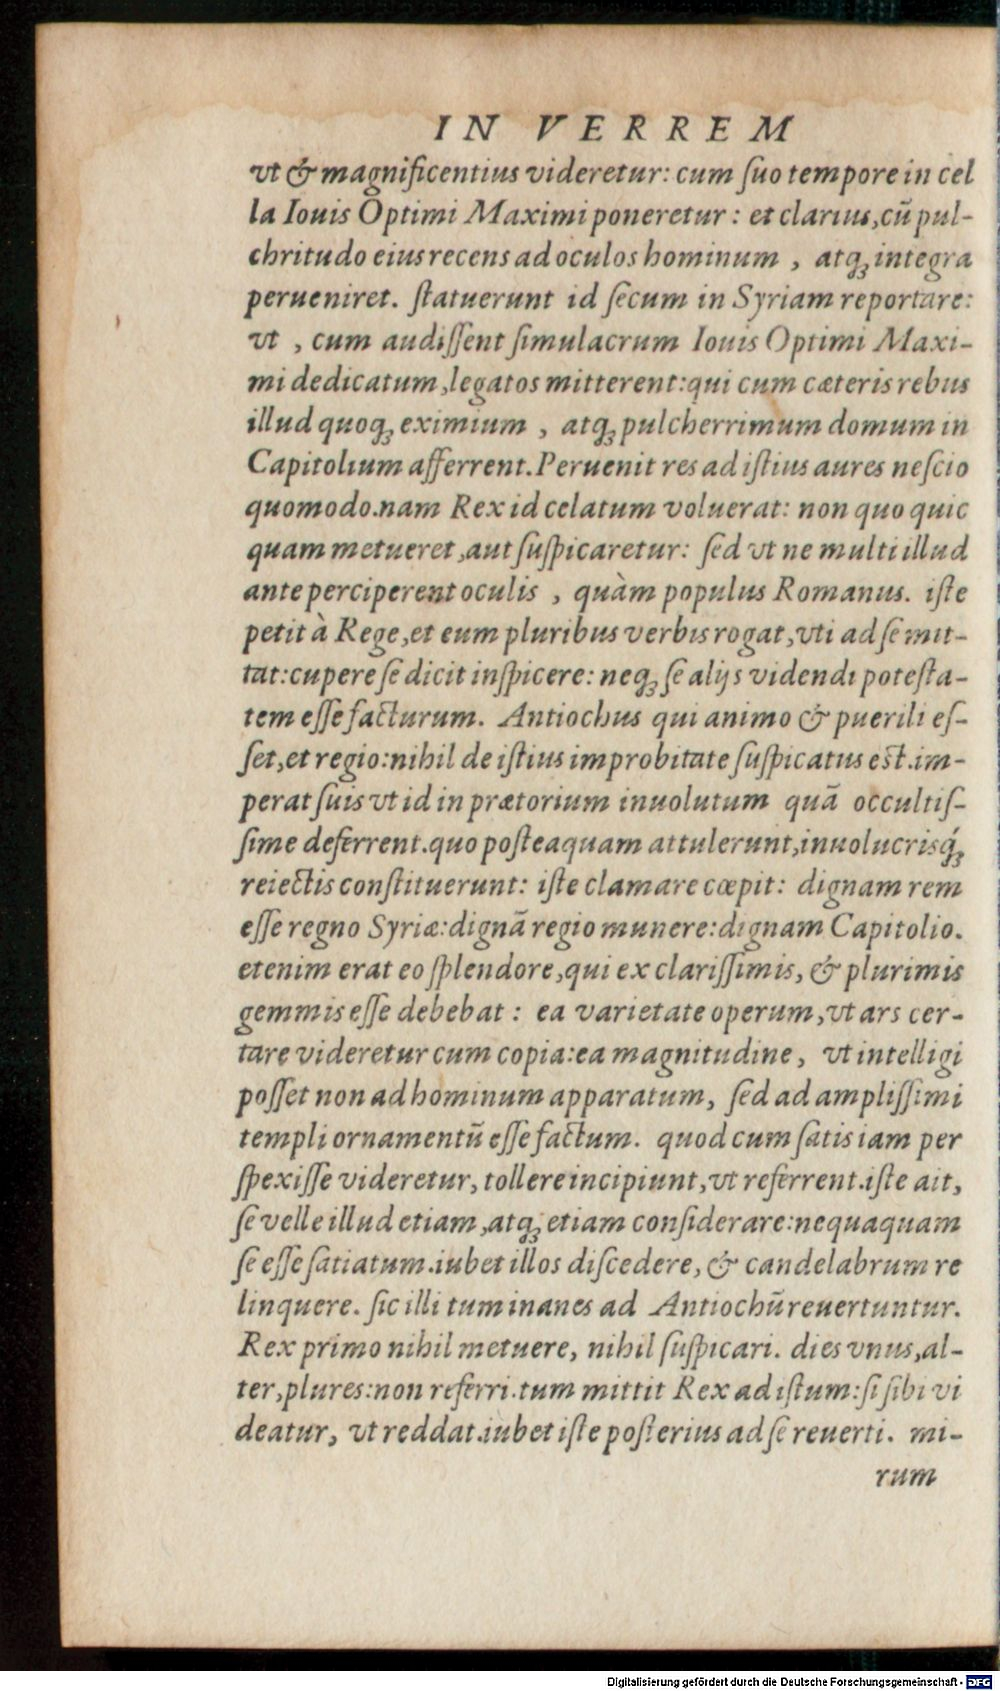 IN VERREM
vt & magnificentius videretur: cum ſuo tempore in cel
la Iouis Optimi Maximi poneretur: et clarius, cū pul-
chritudo eius recens ad oculos hominum, atq; integra
perueniret. ſtatuerunt id ſecum in Syriam reportare:
vt, cum audiſſent ſimulacrum Iouis Optimi Maxi-
mi dedicatum, legatos mitterent: qui cum cæteris rebus
illud quoq; eximium, atq; pulcherrimum domum in
Capitolium afferrent. Peruenit res ad iſtius aures neſcio
quomodo. nam Rex id celatum voluerat: non quo quic
quam metueret, aut ſuſpicaretur: ſed vt ne multi illud
ante perciperent oculis, quàm populus Romanus. iſte
petit à Rege, et eum pluribus verbis rogat, vti ad ſe mit-
tat: cupere ſe dicit inſpicere: neq; ſe alijs videndi poteſta-
tem eſſe facturum. Antiochus qui animo & puerili eſ-
ſet, et regio: nihil de iſtius improbitate ſuſpicatus est. im-
perat ſuis vt id in prætorium inuolutum quā occultiſ-
ſime deferrent. quo poſteaquam attulerunt, inuolucrisq́;
reiectis conſtituerunt: iſte clamare cœpit: dignam rem
eſſe regno Syriæ: dignā regio munere: dignam Capitolio.
etenim erat eo ſplendore, qui ex clariſſimis, & plurimis
gemmis eſſe debebat: ea varietate operum, vt ars cer-
tare videretur cum copia: ea magnitudine, vt intelligi
poſſet non ad hominum apparatum, ſed ad ampliſſimi
templi ornamentū eſſe factum. quod cum ſatis iam per
ſpexiſſe videretur, tollere incipiunt, vt referrent. iſte ait,
ſe velle illud etiam, atq; etiam conſiderare: nequaquam
ſe eſſe ſatiatum. iubet illos diſcedere, & candelabrum re
linquere. ſic illi tum inanes ad Antiochū reuertuntur.
Rex primo nihil metuere, nihil ſuſpicari. dies vnus, al-
ter, plures: non referri. tum mittit Rex ad iſtum: ſi ſibi vi
deatur, vt reddat. iubet iſte poſterius ad ſe reuerti. mi-
rum
Digitalisierung gefördert durch die Deutsche Forschungsgemeinschaft - DFG